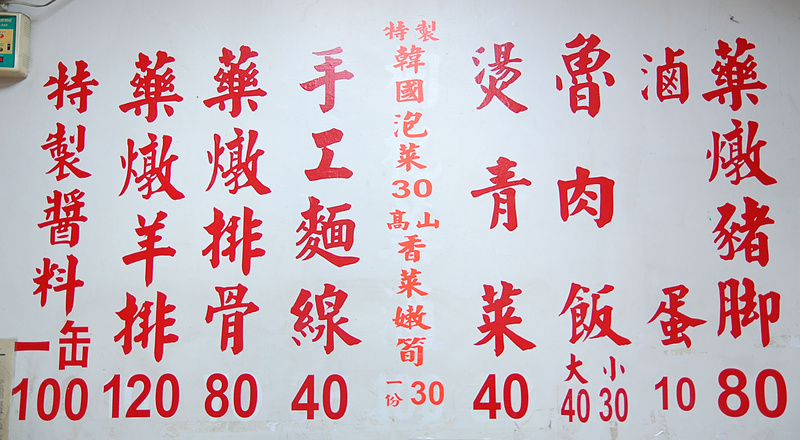 藥燉豬脚 80
滷蛋 10
魯肉飯
小30
大40
燙青菜 40
特製
韓國泡菜30
高山
香菜嫩筍
一份 30
手工麵線 40
藥燉排骨 80
藥燉羊排 120
特製醬料
一缶 100